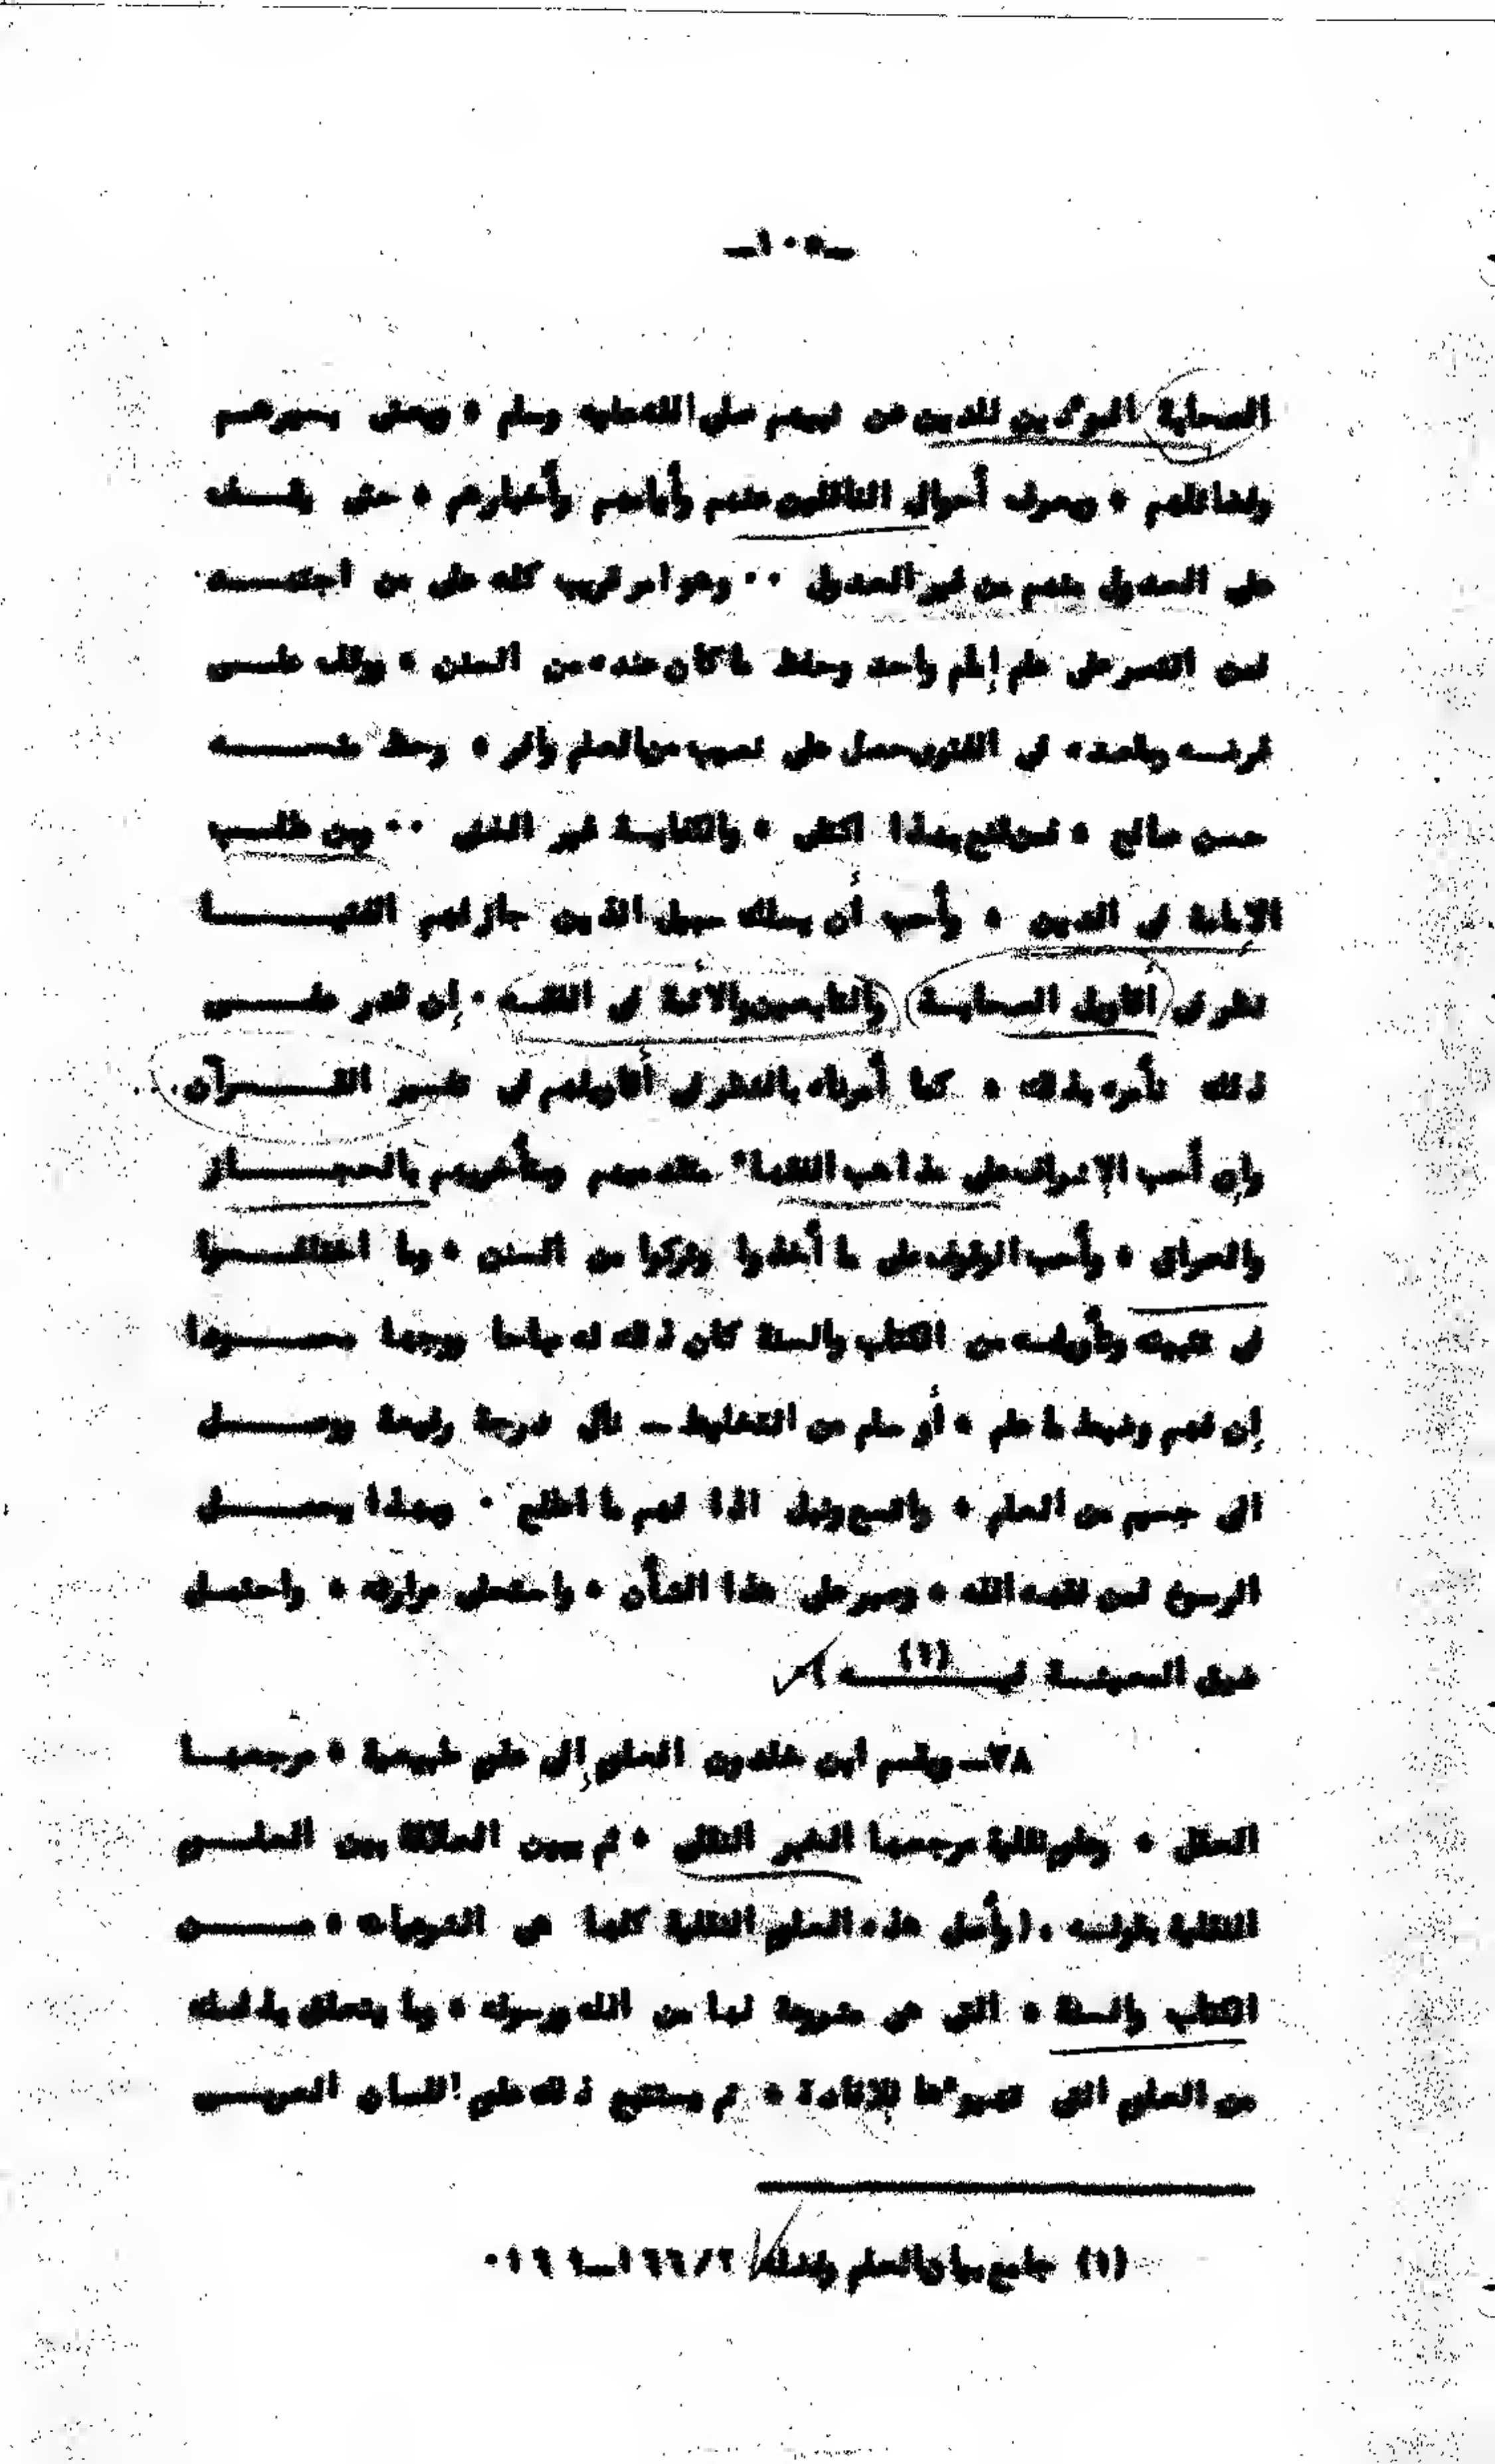 ـ١٠٥ـ
الصحابة المؤدين للدين عن نبيهم صلى الله عليه وسلم ، ويعنى بسيرهم
وفضائلهم ، ويعرف أحوال الناقلين عنهم وأيامهم وأخبارهم ، حتى يقف
على العدول منهم من غير العدول ٠٠ وهو امر قريب كله على من اجتهد
فمن اقتصر على علم إمام واحد وحفظ ما كان عنده من السنن ، ووقف على
غرضه ومقصده في الفتوى حصل على نصيب من العلم وافر ، وحظ منه
حسن صالح ، فمن قنع بهذا اكتفى ، والكفاية غير الغنى ٠٠ ومن طلب
الإمامة في الدين ، وأحب أن يسلك سبيل الذين جاز لهم الفتيا
نظر في أقاويل الصحابة والتابعين والأئمة في الفقه ٠ إن قدر على
ذلك نأمره بذلك ، كما أمرناه بالنظر في أقاويلهم في تفسير القرآن ..
وإن أحب الإشراف على مذاهب الفقهاء متقدميهم ومتأخريهم بالحجاز
والعراق ، وأحب الوقوف على ما أخذوا وتركوا من السنن ، وما اختلفوا
في تثبيته وتأويله من الكتاب والسنة كان ذلك له مباحا ووجها محمودا
إن فهم وضبط ما علم ، أو سلم من التخليط ـ نال درجة رفيعة ووصل
الى جسيم من العلم ، واتسع ونبل اذا فهم ما اطلع ٠ وبهذا يحصل
الرسوخ لمن فقهه الله ، وصبر على هذا الشأن ، واستحلى مرارته ، واحتمل
ضيق المعيشة فيه (١)
٧٨ـ ويقسم ابن خلدون العلوم إلى علوم طبيعية ، مرجعها
العقل ، وعلوم نقلية مرجعها الخبر النقلى ، ثم يبين العلاقة بين العلوم
النقلية بقوله ٠ (وأصل هذه العلوم النقلية كلها هى الشرعيات ، من
الكتاب والسنة ، التى هى مشروعة لنا من الله ورسوله ، وما يتعلق بذلك
من العلوم التى تهيؤها للإفادة ، ثم يستتبع ذلك علوم اللسان العربى
(١) جامع بيان العلم وفضله ١٦٦/٢ـ١٦٩٠